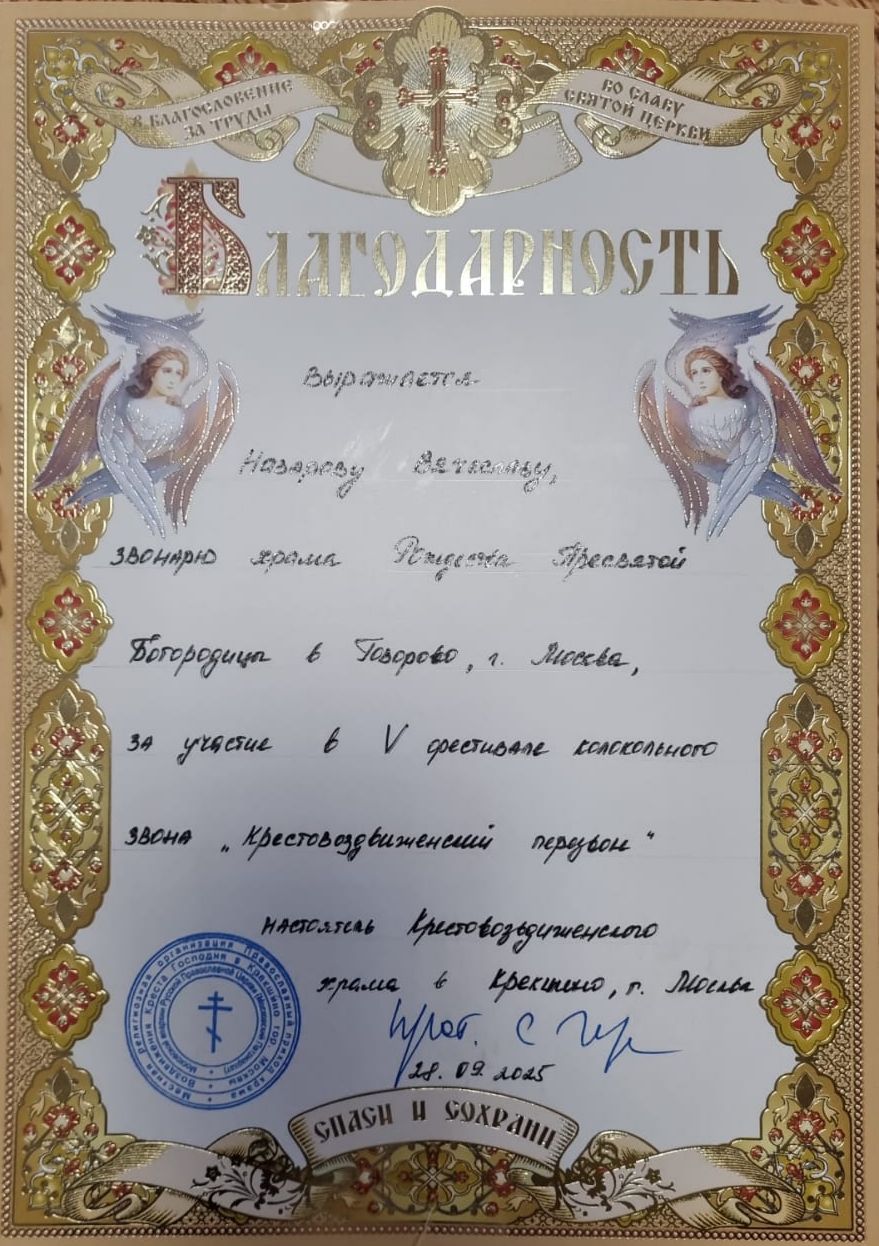 В БЛАГОСЛОВЕНИЕ
ЗА ТРУДЫ
ВО СЛАВУ
СВЯТОЙ ЦЕРКВИ
БЛАГОДАРНОСТЬ
Выражается
Назарову Вячеславу,
звонарю храма Рождества Пресвятой
Богородицы в Говорово, г. Москва,
за участие в V фестивале колокольного
звона „Крестовоздвиженский перезвон“
настоятель Крестовозьдиженского
храма в Крекшино, г. Москва
прот. С
28.09.2025
Местная религиозная организация Православный приход храма
Воздвижения Креста Господня в Крекшино гор. Москвы
Московской епархии Русской Православной Церкви (Московский Патриархат)
СПАСИ И СОХРАНИ